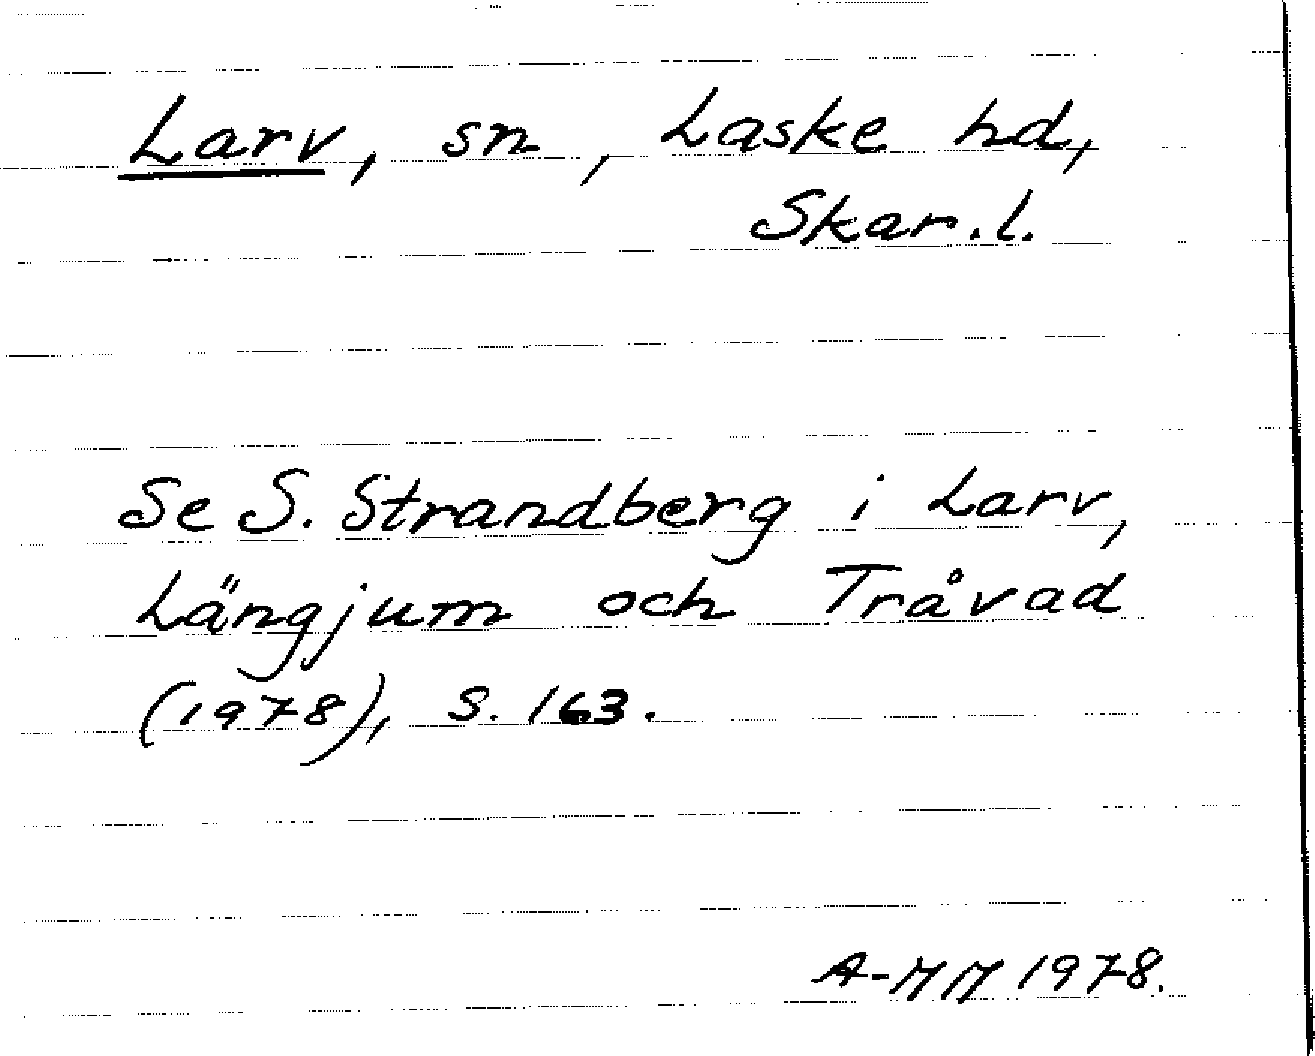 Larv, sn, Laske hd,
Skar. l.
Se S. Strandberg i Larv,
Längjum och Tråvad
(1978), s. 163.
A-MM 1978.